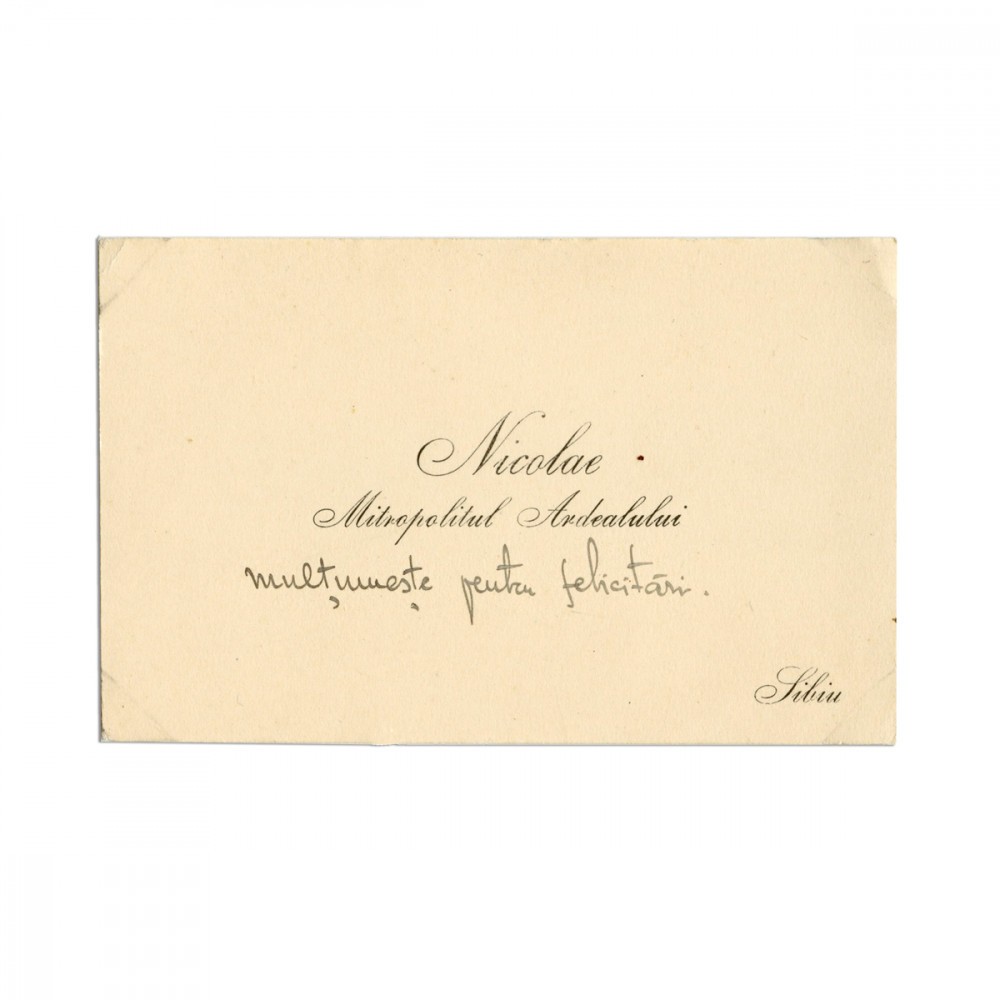 Nicolae
Mitropolitul Ardealului
mulțumește pentru felicitări.
Sibiu